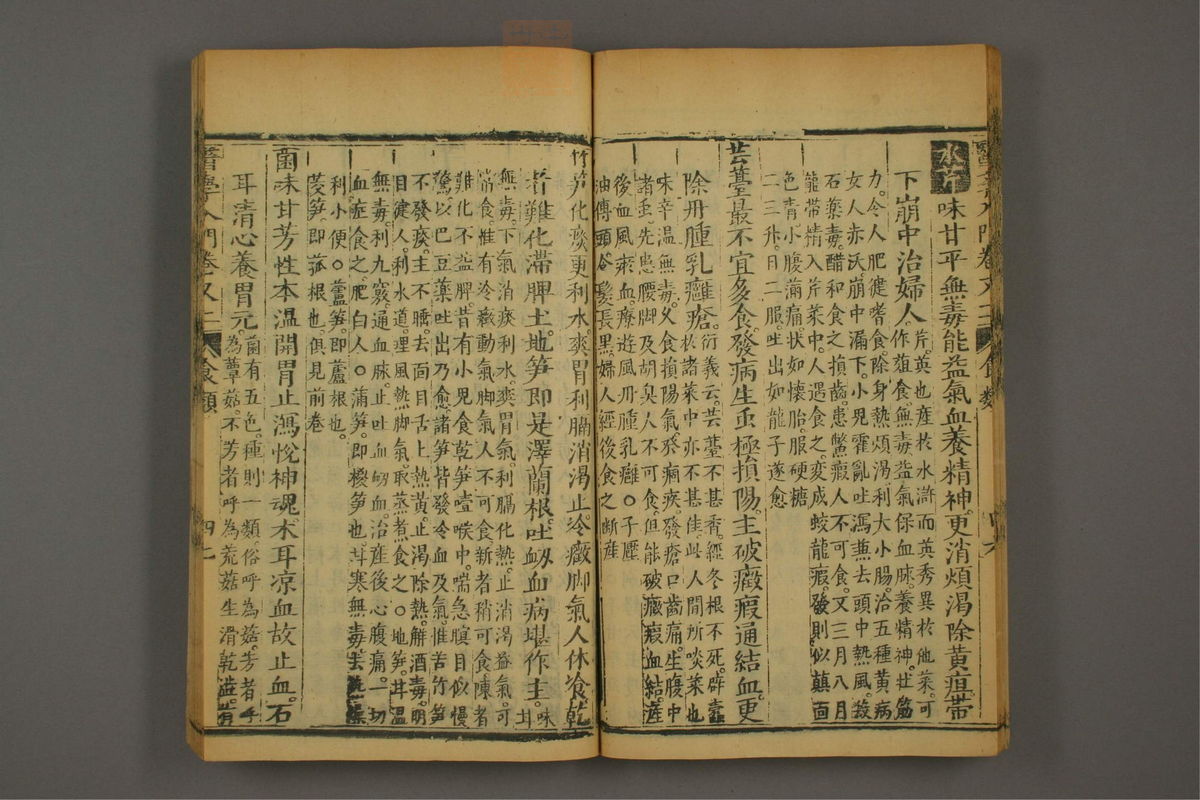 水芹味甘平無毒能益氣血養精神更消煩渴除黃疸帶
下崩中治婦人芹英也產於水滸而英秀異於他菜可
作葅食無毒益氣保血脉養精神壯筋
力令人肥健嗜食除身熱煩渴利大小腸治五種黃病
女人赤沃崩中漏下小兒霍亂吐瀉兼去頭中熱風殺
石藥毒醋和食之損齒患鱉瘕人不可食又三月八月
龍帶精入芹菜中人遇食之變成蛟龍瘕發則似癲面
色青小腹滿痛狀如懷胎服硬糖
二三升日二服吐出如龍子遂愈
芸薹最不宜多食發病生虫極損陽主破癥瘕通結血更
除丹腫乳癰瘡衍義云芸薹不甚香經冬根不死辟蠹
於諸菜中亦不甚佳此人間所啖菜也
味辛溫無毒久食損陽氣發痼疾發瘡口齒痛生腹中
諸虫先患腰脚及胡臭人不可食但能破癥瘕血結產
後血風瘀血療遊風丹腫乳癰○子壓
油傅頭令髮長黑婦人經後食之斷產
竹笋化痰更利水爽胃利膈消渴止冷癥脚氣人休飡乾
者難化滯脾土地笋即是澤蘭根吐衂血病堪作主味
甘
無毒下氣消痰利水爽胃氣利膈化熱止消渴益氣可
常食惟有冷癥動氣脚氣人不可食新者稍可食陳者
難化不益脾昔有小兒食乾笋噎喉中喘急瞋目似慢
驚以巴豆藥吐出乃愈諸笋皆發冷血及氣惟苦竹笋
不發痰主不睡去面目舌上熱黃止渴除熱解酒毒明
目健人利水道理風熱脚氣取蒸煮食之○地笋甘溫
無毒利九竅通血脉止吐血衂血治產後心腹痛一切
血症食之肥白人○蒲笋即
利小便○蘆笋即蘆根也
茭笋即菰根也俱見前卷
菌味甘芳性本溫開胃止瀉悅神魂木耳凉血故止血石
耳清心養胃元菌有五色種則一類俗呼為菇芳者呼
為蕈菇不芳者呼為菇生滑乾澁
醫學入門卷又二
食類
四七
醫學入門卷又二
食類
四六